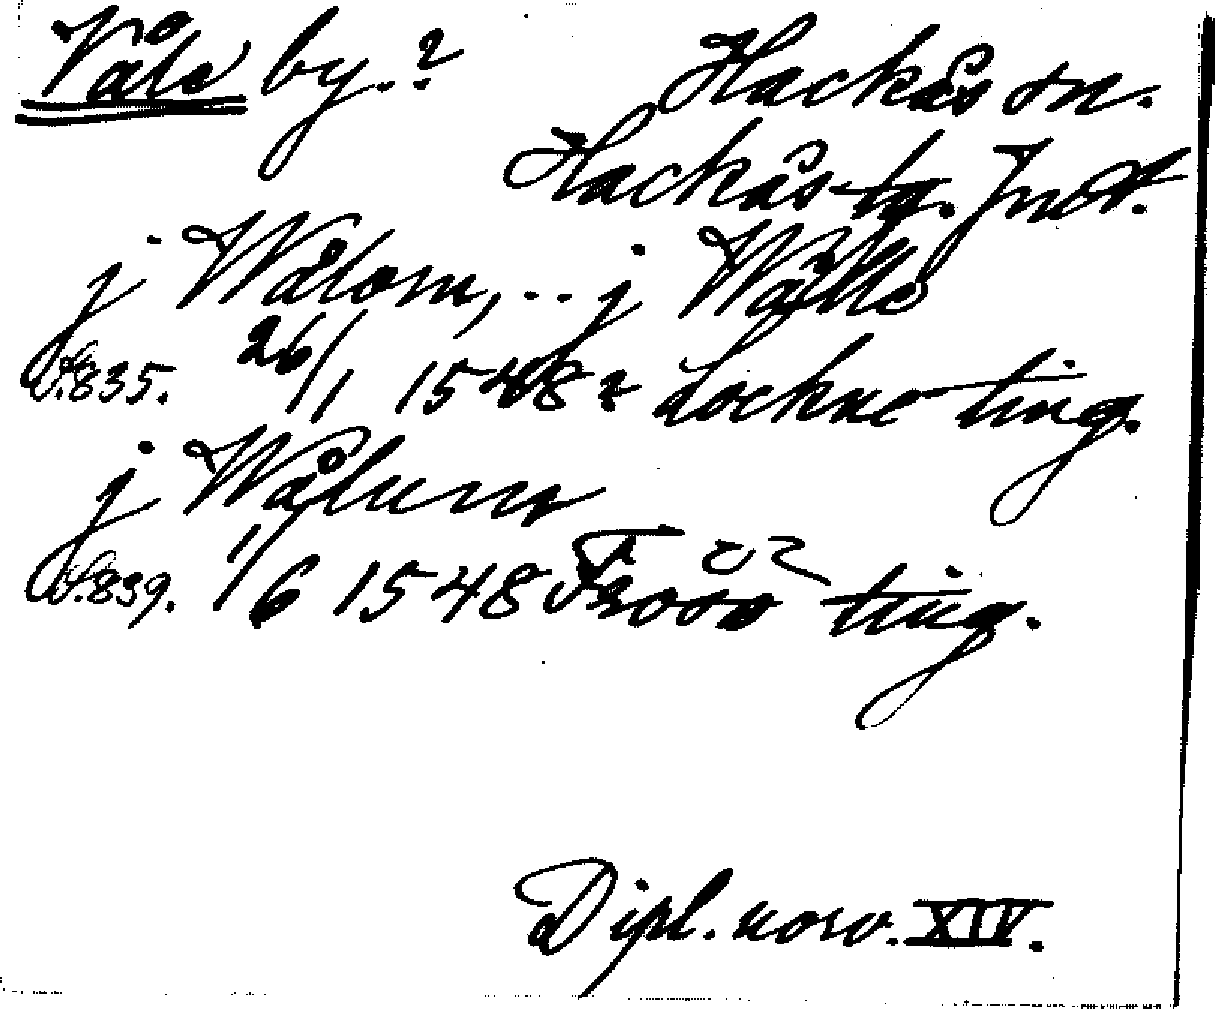 Våle by.? Hackås sn.
Hackås tg. Jmtl.
j Wålom, .. j Wålle
S.835. 26/1 1548 ? Lockne ting.
j Wålum
S.839. 1/6 1548 Frösö ting.
Dipl. norv. XIV.